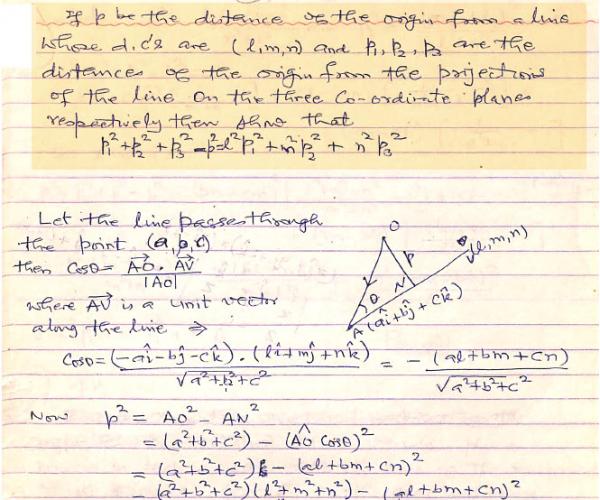 If p be the distance of the origin from a line
whose d.c's are (l,m,n) and p₁, p₂, p₃ are the
distances of the origin from the projections
of the line on the three Co-ordinate planes
respectively then show that
p₁²+p₂²+p₃²-p²=l²p₁²+m²p₂²+n²p₃²
Let the line passes through
the point (a,b,c)
then Cosθ = AO⃗ . AV⃗ / |AO|
where AV⃗ is a unit vector
along the line ⇒
O
p
(l,m,n)
θ
N
A(aî+bĵ+ck̂)
Cosθ = (-aî-bĵ-ck̂).(lî+mĵ+nk̂) / √a²+b²+c² = - (al+bm+cn) / √a²+b²+c²
Now p² = AO² - AN²
= (a²+b²+c²) - (AO Cosθ)²
= (a²+b²+c²) - (al+bm+cn)²
= (a²+b²+c²)(l²+m²+n²) - (al+bm+cn)²